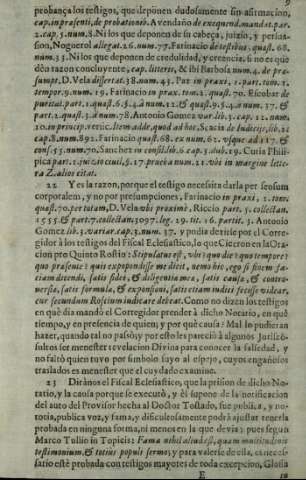 9
probança los testigos, que deponen dudosamente sin afirmacion,
cap. in præsenti, de probationib. Avendaño de exequend. mand. 1. par.
2. cap. 5. num. 8. Ni los que deponen de su cabeça, juizio, y persua-
sion, Noguerol allegat. 26. num. 77. Farinacio de testibus. quæst. 68.
num. 33. Ni los que deponen de credulidad, y creencia, si no es que
dèn razon concluyente, cap. litteris, & ibi Barbosa num. 4. de præ-
sumpt. D. Vela dissertat. 38. num. 43. Par in praxi, 1. part. tom. 1.
tempor. 9. num. 19. Farinacio in prax. tom. 2. quæst. 70. Escobar de
puritat. part. 1. quæst. 6. §. 4. à num. 12. & quæst. 9. §. 4. num. 37. &
part. 2. quæst. 4. à num. 78. Antonio Gomez var. lib. 3. cap. 12. num.
20. in princip. veric. Item adde, quod ad hoc, Scacia de Iudicijs, lib. 2.
cap. 8. num. 892. Farinacio quæst. 68. ex num. 62. vsque ad 117. &
cons. 55. num. 70. Sanchez in consil. lib. 6. cap. 3. dub. 29. Curia Phili-
pica part. 1. juizio civil, §. 17. prueba num. 21. vbi in margine litte-
ra Z. alios citat.
22 Y es la razon, porque el testigo necesita darla per sensum
corporalem, y no por presumpciones, Farinacio in praxi, 2. tom.
quæst. 70. per totam, D. Vela vbi proxime, Riccio part. 5. collectan.
1555. & part. 7. collectan. 3097. leg. 29. tit. 16. partit. 3. Antonio
Gomez lib. 3. variar. cap. 3. num. 37. y podia dezirse por el Corre-
gidor à los testigos del Fiscal Eclesiastico, lo que Ciceron en la Ora-
cion pro Quinto Rostio: Stipulatus est, vbi? quo die? quo tempore?
quo præsente? quis expondisse me dicit, nemo hic, ego si finem fa-
ciam dicendi, satis fidei, & diligentiæ meæ, satis causæ, & contro-
versiæ, satis formulæ, & exponsioni, satis etiam iudici fecisse videar,
cur secundum Rostium iudicare debeat. Como no dizen los testigos
en què dia mandò el Corregidor prender à dicho Notario, en què
tiempo, y en presencia de quien; y por què causa? Mal lo pudieran
hazer, quando tal no passò; y por esto les pareciò à algunos Iurisco-
sultos ser menester revelacion Divina para conocer la falsedad, y
no faltò quien tuvo por simbolo suyo al ciprjo, cuyos engañosos
traslados es menester que el cuydado examine.
23 Dirànos el Fiscal Eclesiastico, que la prision de dicho No-
tario, y la causa porque se executò, y el supone de la notificacion
del auto del Provisor hecha al Doctor Tostado, fue publica, y no-
toria, publica voz, y fama, y dificultosamente podrà ajustar tenerla
probada en ninguna forma, ni menos en la que devia; pues segun
Marco Tullio in Topicis: Fama nihil aliud est, quam multitudinis
testimonium, & totius populi sermo; y para valerse de ella, es nece-
sario estè probada con testigos mayores de toda excepcion, Glossa
E in